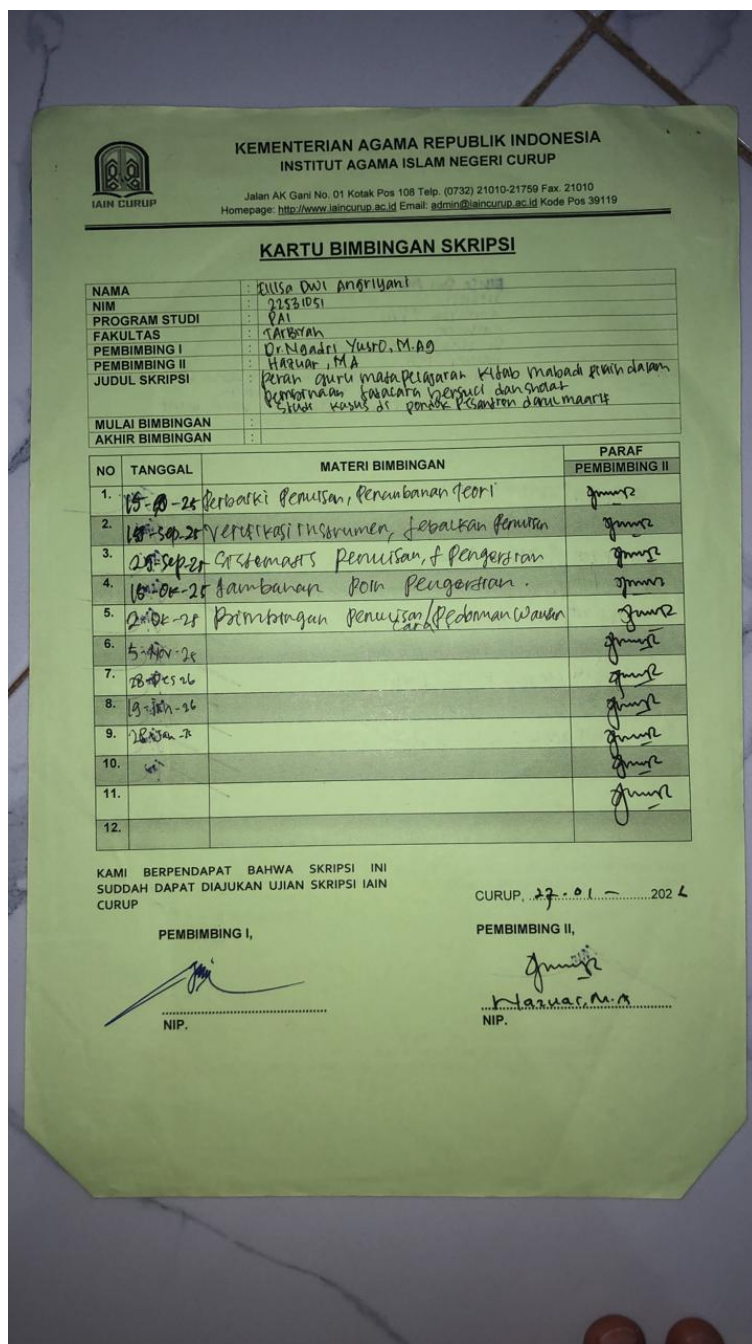 KEMENTERIAN AGAMA REPUBLIK INDONESIA
INSTITUT AGAMA ISLAM NEGERI CURUP
IAIN CURUP
Jalan AK Gani No. 01 Kotak Pos 108 Telp. (0732) 21010-21759 Fax. 21010
Homepage: http://www.iaincurup.ac.id Email: admin@iaincurup.ac.id Kode Pos 39119
KARTU BIMBINGAN SKRIPSI
NAMA : Dwi Angriyani
NIM : 22531051
PROGRAM STUDI : PAI
FAKULTAS : Tarbiyah
PEMBIMBING I : Dr. Ngadri Yusro, M.Ag
PEMBIMBING II : Hazuar, MA
JUDUL SKRIPSI : Peran guru mata pelajaran kitab mabadi dalam
pembinaan tatacara bersuci dan shalat
Studi kasus di pondok Pesantren darul maarif
MULAI BIMBINGAN :
AKHIR BIMBINGAN :
NO TANGGAL MATERI BIMBINGAN PARAF
PEMBIMBING II
1. Penulisan, teori
2. Verifikasi instrumen,
3. Sistematis penulisan, Pengertian
4. Poin Pengertian.
5. Bimbingan Penulisan/Pedoman Wawan
cara
6.
7.
8.
9.
10.
11.
12.
KAMI BERPENDAPAT BAHWA SKRIPSI INI
SUDDAH DAPAT DIAJUKAN UJIAN SKRIPSI IAIN
CURUP
CURUP, 27-01-2026
PEMBIMBING I, PEMBIMBING II,
Hazuar, M.A
NIP. NIP.